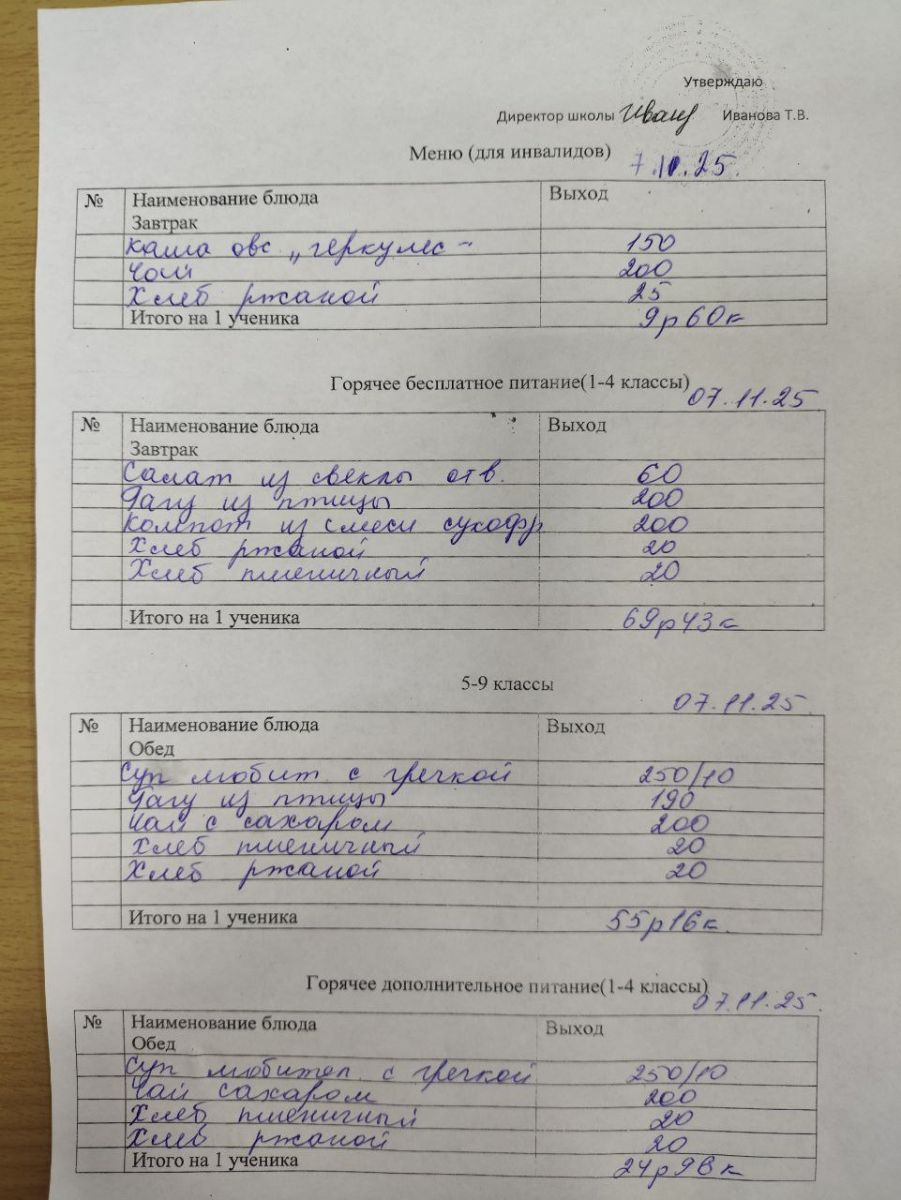 Утверждаю
Директор школы Иван Иванова Т.В.
Меню (для инвалидов) 7.11.25.
№ Наименование блюда Выход
Завтрак
каша овс „геркулес" 150
чай 200
Хлеб ржаной 25
Итого на 1 ученика 9р60к
Горячее бесплатное питание(1-4 классы)
07.11.25
№ Наименование блюда Выход
Завтрак
Салат из свеклы отв. 60
Рагу из птицы 200
Компот из смеси сухофр 200
Хлеб ржаной 20
Хлеб пшеничный 20
Итого на 1 ученика 69р43к
5-9 классы
07.11.25
№ Наименование блюда Выход
Обед
Суп любит с гречкой 250/10
Рагу из птицы 190
Чай с сахаром 200
Хлеб пшеничный 20
Хлеб ржаной 20
Итого на 1 ученика 55р16к.
Горячее дополнительное питание(1-4 классы)
07.11.25
№ Наименование блюда Выход
Обед
Суп любител с гречкой 250/10
Чай сахаром 200
Хлеб пшеничный 20
Хлеб ржаной 20
Итого на 1 ученика 24р96к